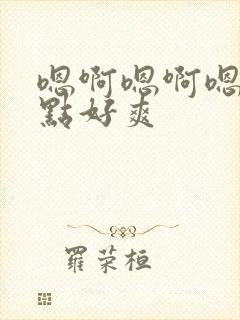 嗯啊嗯啊嗯
點好爽
羅荣桓